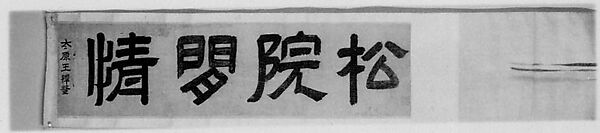 松院閒情
太原王穉登